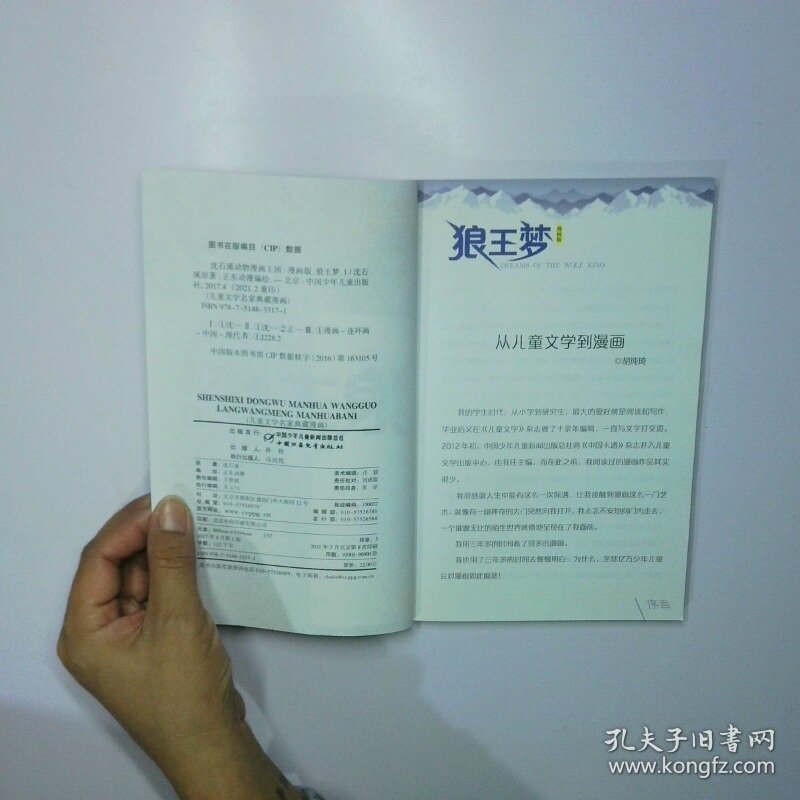 图书在版编目（CIP）数据
沈石溪动物漫画王国：漫画版. 狼王梦. 1 / 沈石
溪原著；正东动漫编绘. — 北京：中国少年儿童出版
社, 2017.4 （2021.2重印）
（儿童文学名家典藏漫画）
ISBN 978-7-5148-3317-1
Ⅰ. ①沈… Ⅱ. ①沈… ②正… Ⅲ. ①漫画－连环画
－中国－现代 Ⅳ. ①J228.2
中国版本图书馆CIP数据核字（2016）第163105号
SHENSHIXI DONGWU MANHUA WANGGUO
LANGWANGMENG MANHUABANI
（儿童文学名家典藏漫画）
出版发行：中国少年儿童新闻出版总社
中国少年儿童出版社
出版人：
执行出版人：马兴民
美术编辑：
责任校对：
责任印务：
邮政编码：100022
编辑部：010-57526
发行部：010-57526
印张：5
2017年4月第1版
2021年2月北京第8次印刷
定价：22.00元
狼王梦
漫画版
DREAMS OF THE WOLF KING
从儿童文学到漫画
◎胡纯琦
我的学生时代，从小学到研究生，最大的爱好就是阅读和写作。
毕业后又在《儿童文学》杂志做了十余年编辑，一直与文字打交道。
2012年初，中国少年儿童新闻出版总社将《中国卡通》杂志并入儿童
文学出版中心，由我任主编。而在此之前，我阅读过的漫画作品其实
很少。
我很感谢人生中能有这么一次际遇，让我接触到漫画这么一门艺
术，就像有一扇神奇的大门突然向我打开，我忐忑不安地向门内走去，
一个璀璨无比的陌生世界就倏地呈现在了我面前。
我用三年多的时间看了很多的漫画。
我也用了三年多的时间去慢慢明白：为什么，全球亿万少年儿童
会对漫画如此痴迷！
序言
孔夫子旧书网
www.kongfz.com